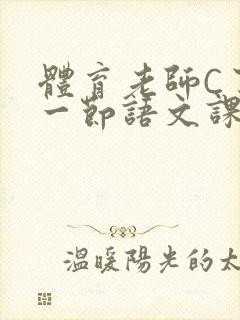 體育老師C
一節語文課
溫暖陽光的太